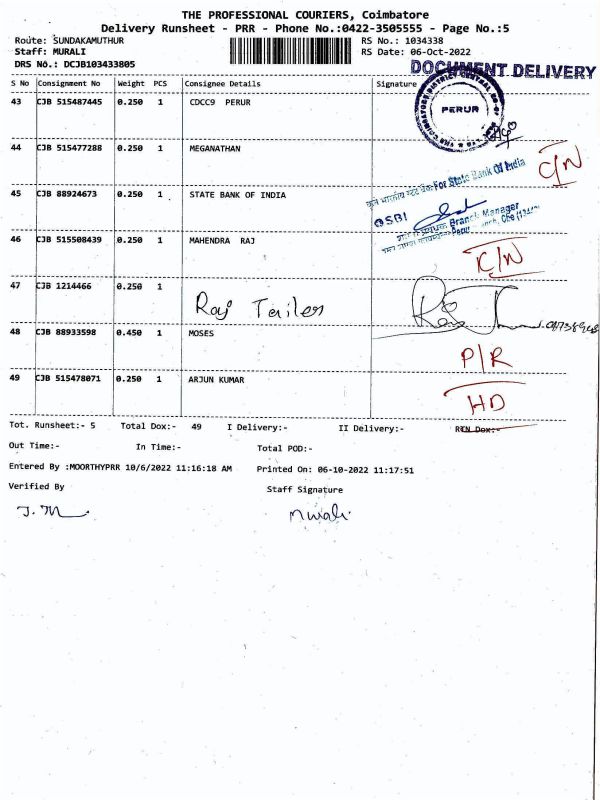 THE PROFESSIONAL COURIERS, Coimbatore
Delivery Runsheet - PRR - Phone No.:0422-3505555 - Page No.:5
Route: SUNDAKAMUTHUR RS No.: 1034338
Staff: MURALI RS Date: 06-Oct-2022
DRS No.: DCJB103433805
DOCUMENT DELIVERY
S No Consignment No Weight PCS Consignee Details Signature
43 CJB 515487445 0.250 1 CDCC9 PERUR
PERUR
44 CJB 515477288 0.250 1 MEGANATHAN C/N
45 CJB 88924673 0.250 1 STATE BANK OF INDIA
For State Bank Of India
SBI
Branch Manager
46 CJB 515508439 0.250 1 MAHENDRA RAJ C/N
47 CJB 1214466 0.250 1
Raj Tailer
48 CJB 88933598 0.450 1 MOSES P/R
49 CJB 515478071 0.250 1 ARJUN KUMAR HD
Tot. Runsheet:- 5 Total Dox:- 49 I Delivery:- II Delivery:- RTN Dox:-
Out Time:- In Time:- Total POD:-
Entered By :MOORTHYPRR 10/6/2022 11:16:18 AM Printed On: 06-10-2022 11:17:51
Verified By Staff Signature
Murali